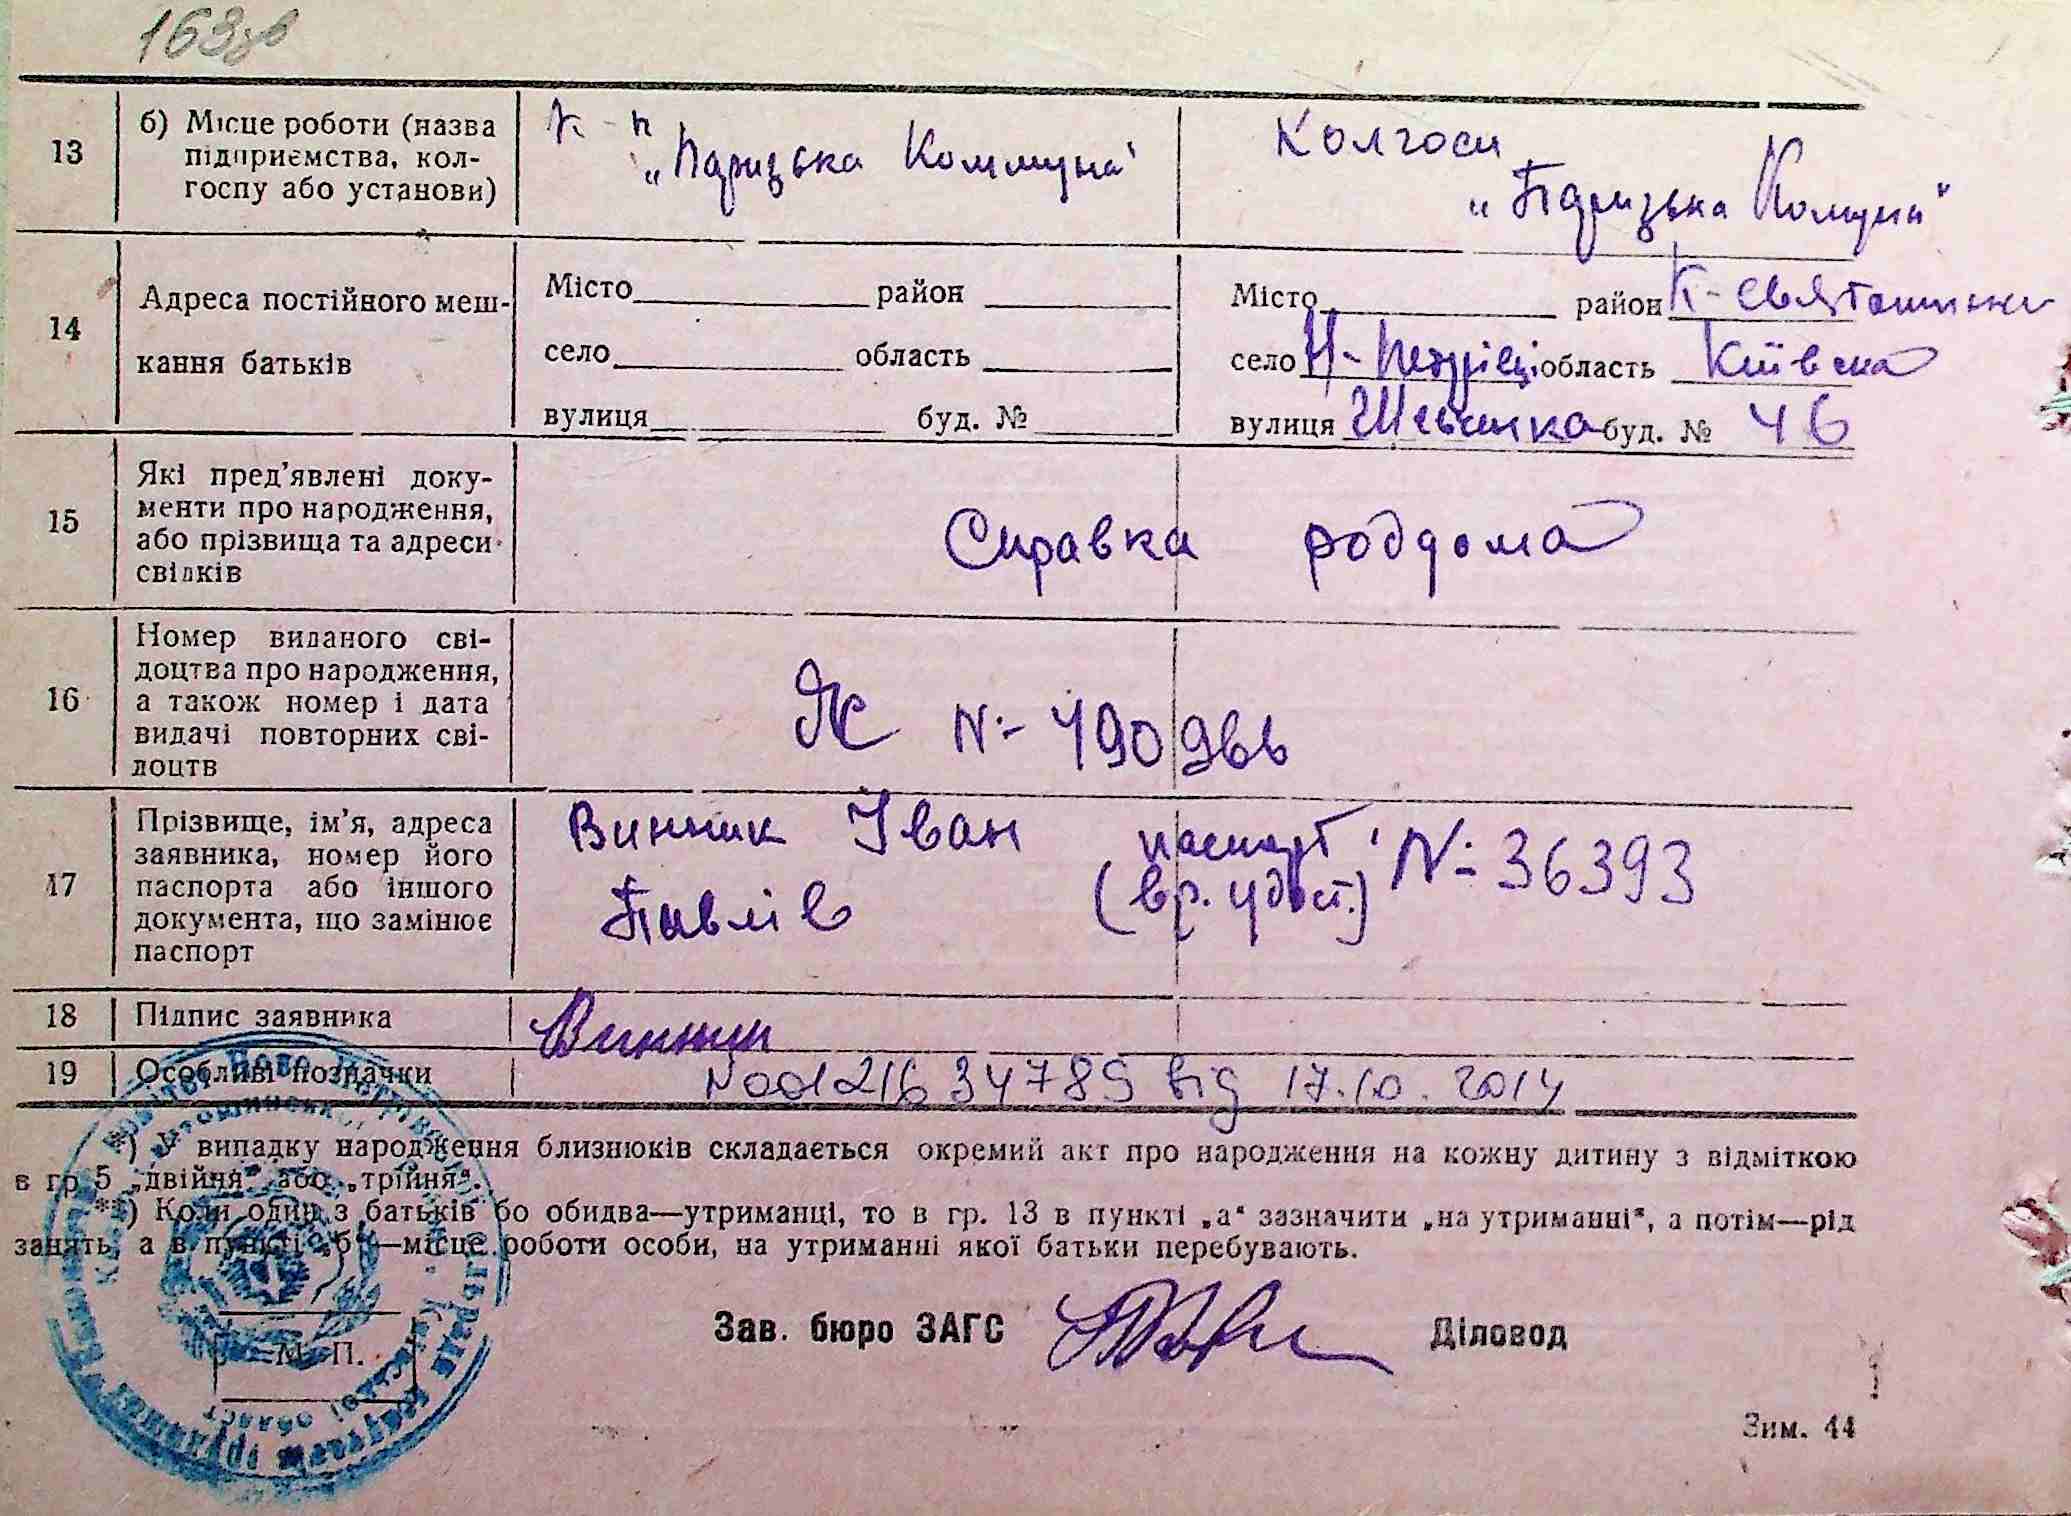 163зв
13
б) Місце роботи (назва
підприємства, кол-
госпу або установи)
к-п
„Паризька Коммуна"
Колгосп
„Паризька Комуна"
14
Адреса постійного меш-
кання батьків
Місто район
село область
вулиця буд. №
Місто район К-Святошинськ
село Н-Петрівці область Київська
вулиця Шевченка буд. № 46
15
Які пред'явлені доку-
менти про народження,
або прізвища та адреси
свідків
Справка роддома
16
Номер виданого сві-
доцтва про народження,
а також номер і дата
видачі повторних сві-
доцтв
ЯЄ № 490966
17
Прізвище, ім'я, адреса
заявника, номер його
паспорта або іншого
документа, що замінює
паспорт
Винник Іван паспорт № 36393
Павлів (вр. удост.)
18
Підпис заявника
Винник
19
Особливі позначки
N00121634789 від 17.10.2014
*) У випадку народження близнюків складається окремий акт про народження на кожну дитину з відміткою
в гр 5 „двійня" або „трійня".
**) Коли один з батьків бо обидва—утриманці, то в гр. 13 в пункті „а" зазначити „на утриманні", а потім—рід
занять, а в пункті „б"—місце роботи особи, на утриманні якої батьки перебувають.
М. П.
Зав. бюро ЗАГС
Діловод
Зим. 44